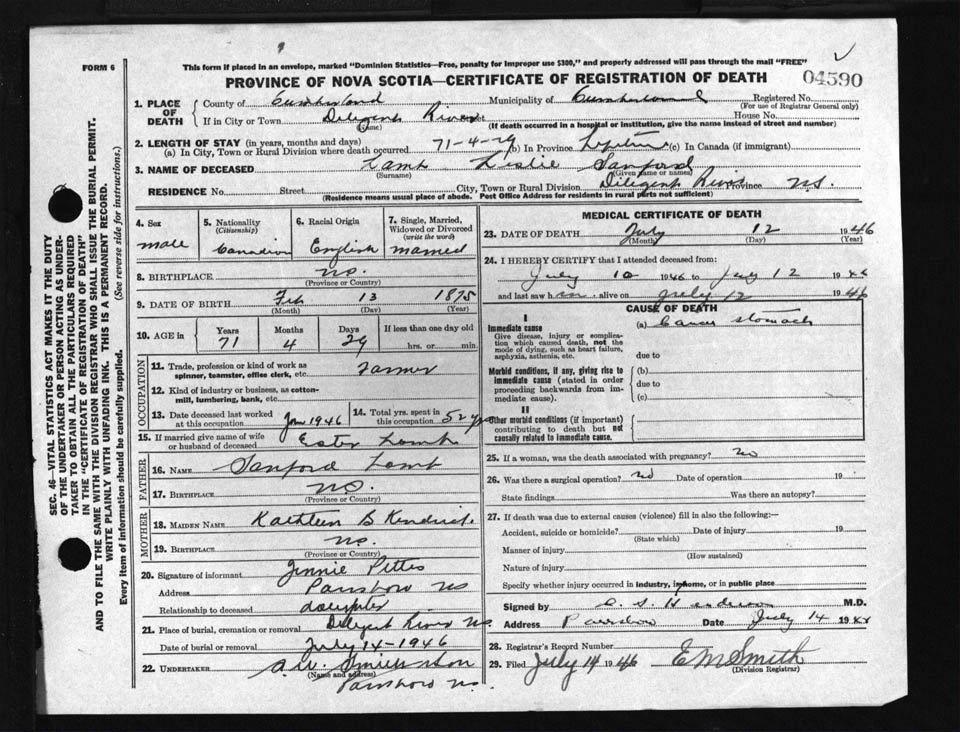 FORM 6
This form if placed in an envelope, marked "Dominion Statistics—Free, penalty for improper use $300," and properly addressed will pass through the mail "FREE"
PROVINCE OF NOVA SCOTIA—CERTIFICATE OF REGISTRATION OF DEATH
04590
SEC. 46—VITAL STATISTICS ACT MAKES IT THE DUTY
OF THE UNDERTAKER OR PERSON ACTING AS UNDER-
TAKER TO OBTAIN ALL THE PARTICULARS REQUIRED
IN THE "CERTIFICATE OF REGISTRATION OF DEATH"
AND TO FILE THE SAME WITH THE DIVISION REGISTRAR WHO SHALL ISSUE THE BURIAL PERMIT.
WRITE PLAINLY WITH UNFADING INK. THIS IS A PERMANENT RECORD.
Every item of information should be carefully supplied. (See reverse side for instructions.)
1. PLACE OF DEATH County of Cumberland Municipality of Cumberland Registered No.
(For use of Registrar General only)
If in City or Town Diligent River House No.
(Name) (If death occurred in a hospital or institution, give the name instead of street and number)
2. LENGTH OF STAY (in years, months and days)
(a) In City, Town or Rural Division where death occurred 71-4-29 (b) In Province Lifetime (c) In Canada (if immigrant)
3. NAME OF DECEASED Lamb Leslie Sanford
(Surname) (Given name or names)
RESIDENCE No. Street City, Town or Rural Division Diligent River Province N.S.
(Residence means usual place of abode. Post Office Address for residents in rural parts not sufficient)
4. Sex
male
5. Nationality
(Citizenship)
Canadian
6. Racial Origin
English
7. Single, Married,
Widowed or Divorced
(write the word)
married
8. BIRTHPLACE N.S.
(Province or Country)
9. DATE OF BIRTH Feb 13 1875
(Month) (Day) (Year)
10. AGE in Years Months Days If less than one day old
71 4 29 hrs. or min.
OCCUPATION
11. Trade, profession or kind of work as
spinner, teamster, office clerk, etc. Farmer
12. Kind of industry or business, as cotton-
mill, lumbering, bank, etc.
13. Date deceased last worked
at this occupation 1946
14. Total yrs. spent in
this occupation 52 yrs
15. If married give name of wife
or husband of deceased Ester Lamb
FATHER
16. NAME Sanford Lamb
17. BIRTHPLACE N.S.
(Province or Country)
MOTHER
18. MAIDEN NAME Kathleen B Kendrick
19. BIRTHPLACE N.S.
(Province or Country)
20. Signature of informant Jennie Pettis
Address Parrsboro NS
Relationship to deceased daughter
21. Place of burial, cremation or removal Diligent River NS
Date of burial or removal July 14-1946
22. UNDERTAKER A.W. Smith & Son
(Name and address)
Parrsboro N.S.
MEDICAL CERTIFICATE OF DEATH
23. DATE OF DEATH July 12 1946
(Month) (Day) (Year)
24. I HEREBY CERTIFY that I attended deceased from:
July 10 1946 to July 12 1946
and last saw him alive on July 12 1946
CAUSE OF DEATH
I
Immediate cause (a) Cancer stomach
Give disease, injury or complica-
tion which caused death, not the
mode of dying, such as heart failure,
asphyxia, asthenia, etc. due to
Morbid conditions, if any, giving rise to (b)
immediate cause (stated in order
proceeding backwards from im-
mediate cause). due to
(c)
II
Other morbid conditions (if important)
contributing to death but not
causally related to immediate cause.
25. If a woman, was the death associated with pregnancy? No
26. Was there a surgical operation? No Date of operation 19
State findings Was there an autopsy?
27. If death was due to external causes (violence) fill in also the following:—
Accident, suicide or homicide? Date of injury 19
(State which)
Manner of injury
(How sustained)
Nature of injury
Specify whether injury occurred in industry, in home, or in public place
Signed by M.D.
Address Parrsboro Date July 14 19
28. Registrar's Record Number
29. Filed July 14 1946 E M Smith
(Division Registrar)